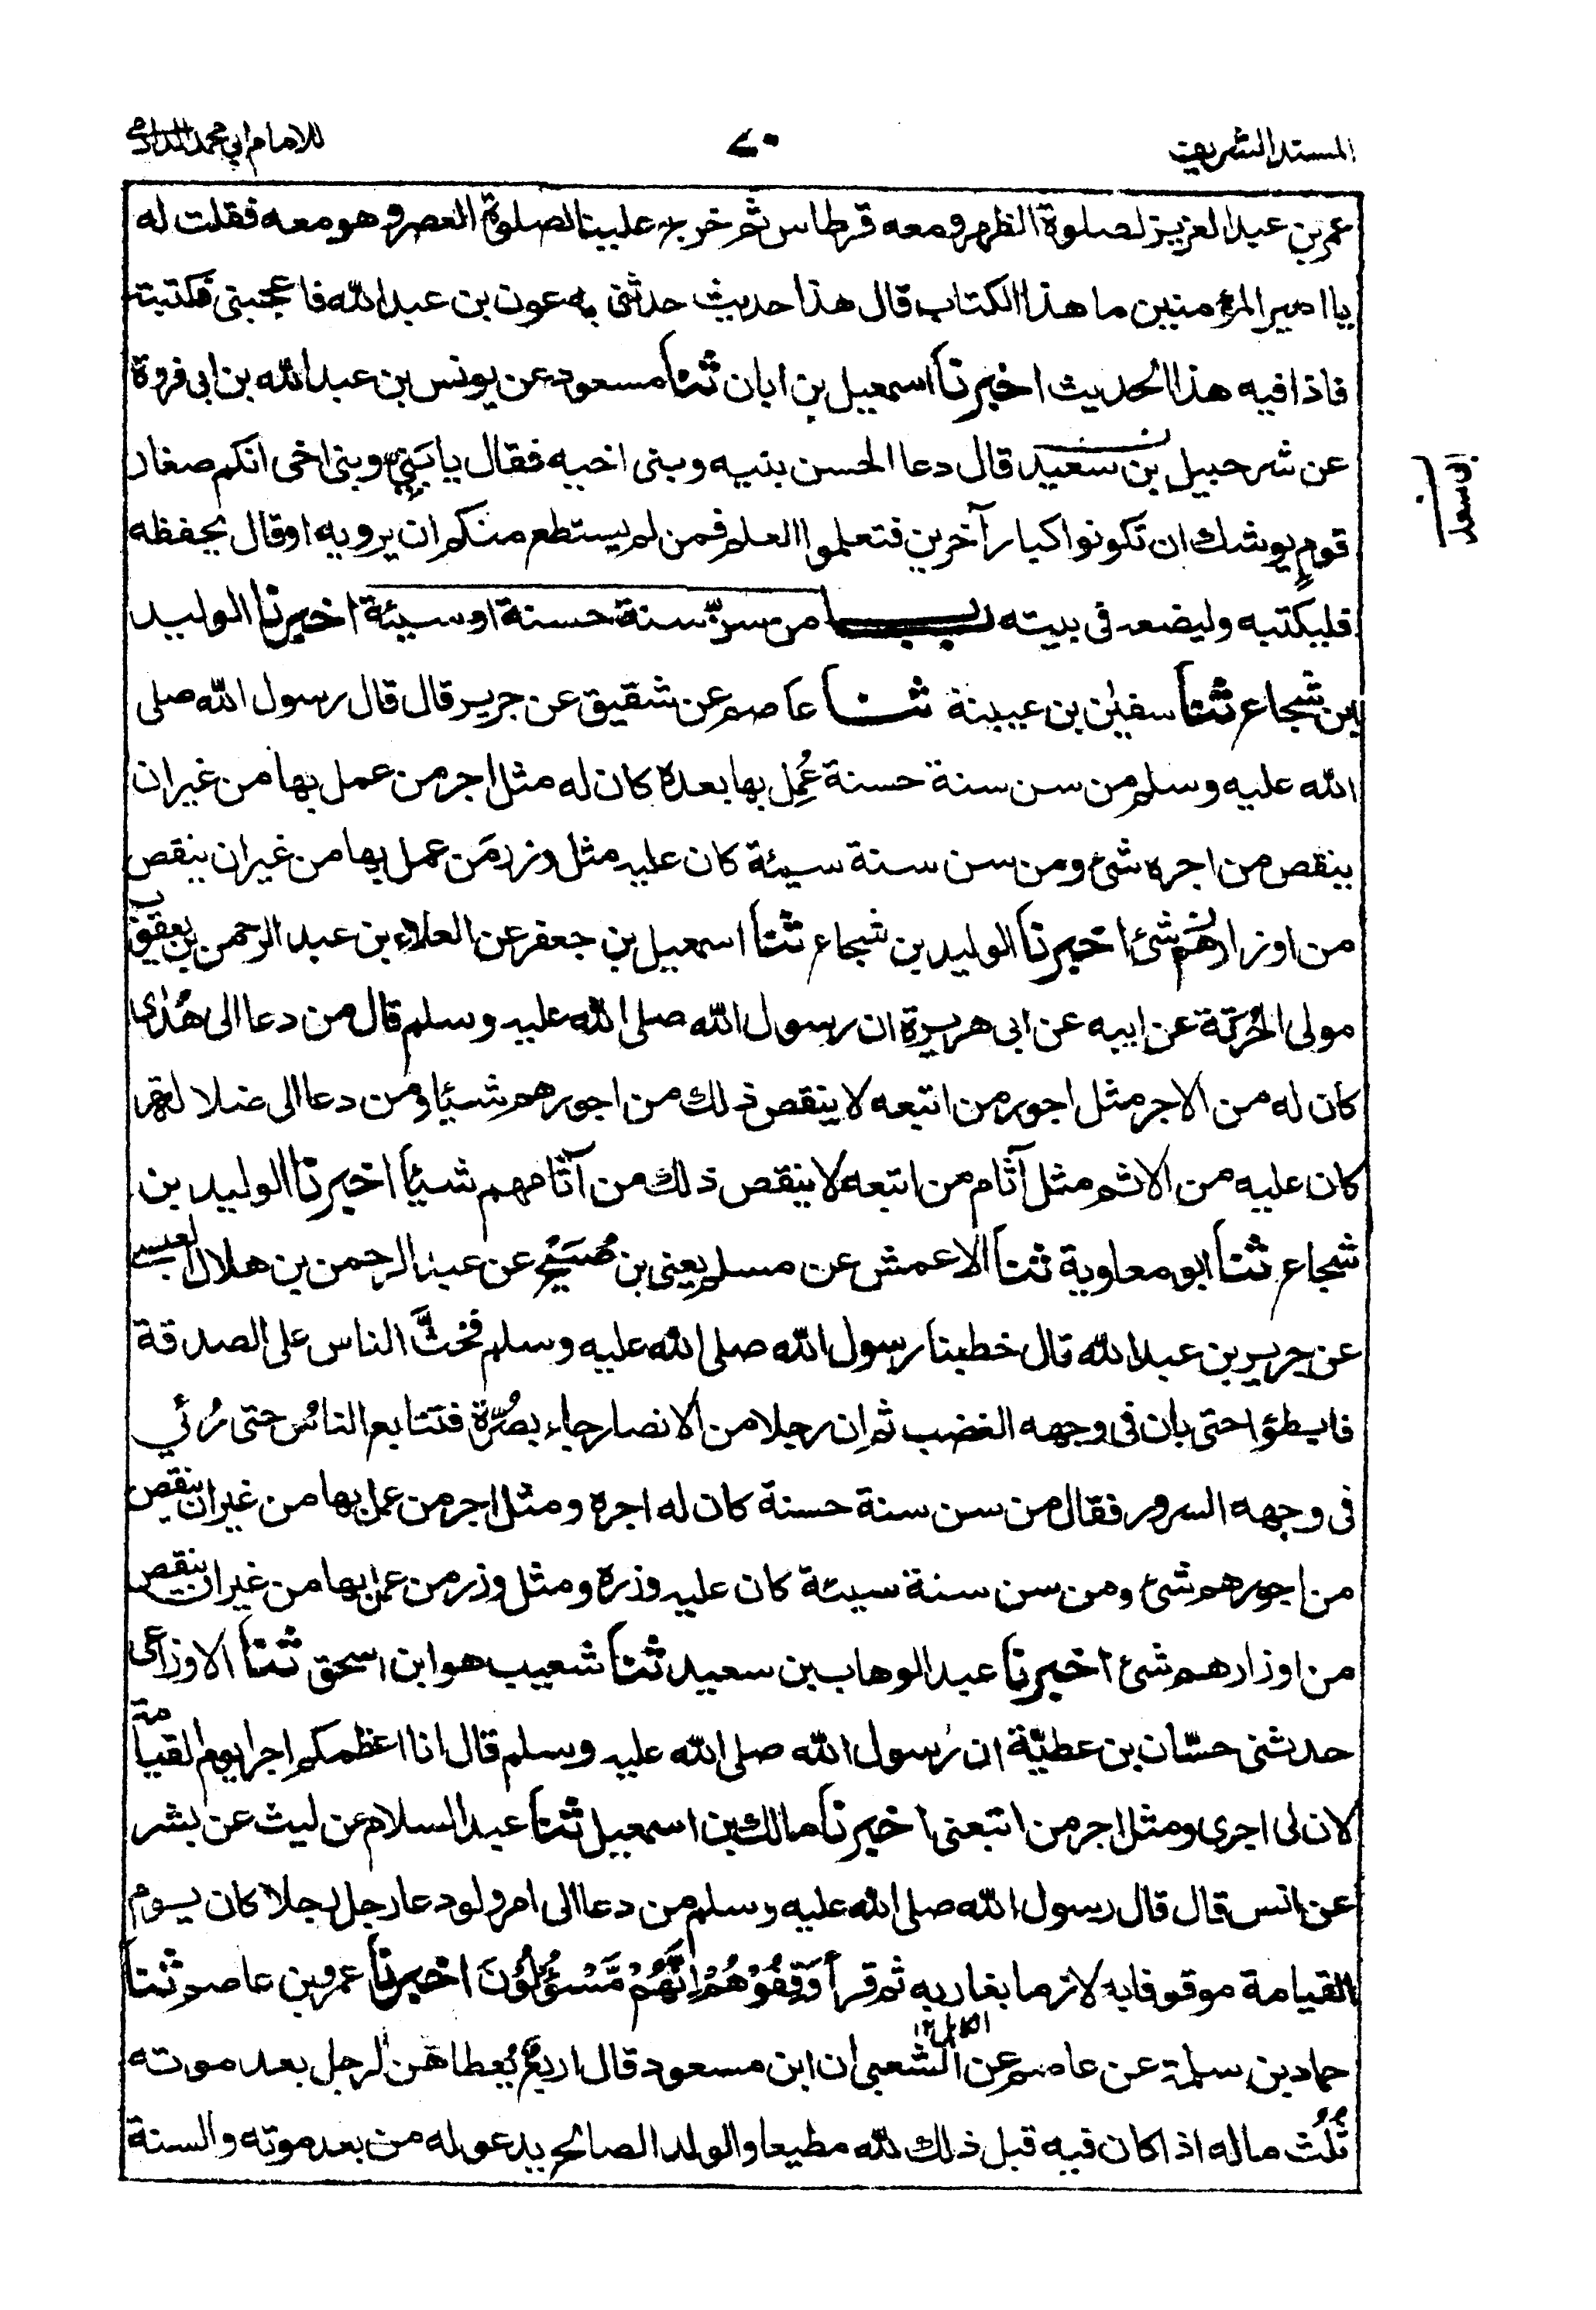 المسند الشريف
٧٠
للامام ابي محمد الدارمي
عمر بن عبد العزيز لصلوة الظهر ومعه قرطاس ثم خرج علينا لصلوة العصر وهو معه فقلت له
يا امير المؤمنين ما هذا الكتاب قال هذا حديث حدثني به عون بن عبد الله فاعجبني فكتبته
فاذا فيه هذا الحديث اخبرنا اسمعيل بن ابان ثنا مسعود عن يونس بن عبد الله بن ابي فروة
عن شرحبيل بن سعيد قال دعا الحسن بنيه وبني اخيه فقال يا بَنِيَّ وبني اخي انكم صغار
قومٍ يوشك ان تكونوا كبار آخرين فتعلموا العلم فمن لم يستطع منكم ان يرويه او قال يحفظه
فليكتبه وليضعه في بيته باب من سنّ سنة حسنة او سيئة اخبرنا الوليد
ابن شجاع ثنا سفين بن عيينة ثنا عاصم عن شقيق عن جرير قال قال رسول الله صلى
الله عليه وسلم من سن سنة حسنة عُمِل بها بعده كان له مثل اجر من عمل بها من غير ان
ينقص من اجره شئ ومن سن سنة سيئة كان عليه مثل وزر مَن عمل بها من غير ان ينقص
من اوزارهم شئ اخبرنا الوليد بن شجاع ثنا اسمعيل بن جعفر عن العلاء بن عبد الرحمن بن يعقوب
مولى الحُرَقة عن ابيه عن ابي هريرة ان رسول الله صلى الله عليه وسلم قال من دعا الى هُدًى
كان له من الاجر مثل اجور من اتبعه لا ينقص ذلك من اجورهم شيئا ومن دعا الى ضلالة
كان عليه من الاثم مثل آثام من اتبعه لا ينقص ذلك من آثامهم شيئا اخبرنا الوليد بن
شجاع ثنا ابو معاوية ثنا الاعمش عن مسلم يعني بن صُبَيْح عن عبد الرحمن بن هلال العبسي
عن جرير بن عبد الله قال خطبنا رسول الله صلى الله عليه وسلم فحَثَّ الناس على الصدقة
فابطؤا حتى بان في وجهه الغضب ثم ان رجلا من الانصار جاء بصُرّة فتتابع الناسُ حتى رُئي
في وجهه السرور فقال من سن سنة حسنة كان له اجره ومثل اجر من عمل بها من غير ان ينقص
من اجورهم شئ ومن سن سنة سيئة كان عليه وزره ومثل وزر من عمل بها من غير ان ينقص
من اوزارهم شئ اخبرنا عبد الوهاب بن سعيد ثنا شعيب هو ابن اسحق ثنا الاوزاعي
حدثني حسّان بن عطيّة ان رسول الله صلى الله عليه وسلم قال انا اعظمكم اجرا يوم القيامة
لان لي اجري ومثل اجر من اتبعني اخبرنا مالك بن اسمعيل ثنا عبد السلام عن ليث عن بشر
عن انس قال قال رسول الله صلى الله عليه وسلم من دعا الى امر ولو دعا رجل رجلا كان يوم
القيامة موقوفا به لازما بغاربه ثم قرأ وَقِفُوْهُمْ اِنَّهُمْ مَّسْئُوْلُوْنَ اخبرنا عمرو بن عاصم ثنا
حماد بن سلمة عن عاصم عن الشعبي ان ابن مسعود قال اربعٌ يُعطاهن الرجل بعد موته
ثُلُث ماله اذا كان فيه قبل ذلك لله مطيعا والولد الصالح يدعو له من بعد موته والسنة